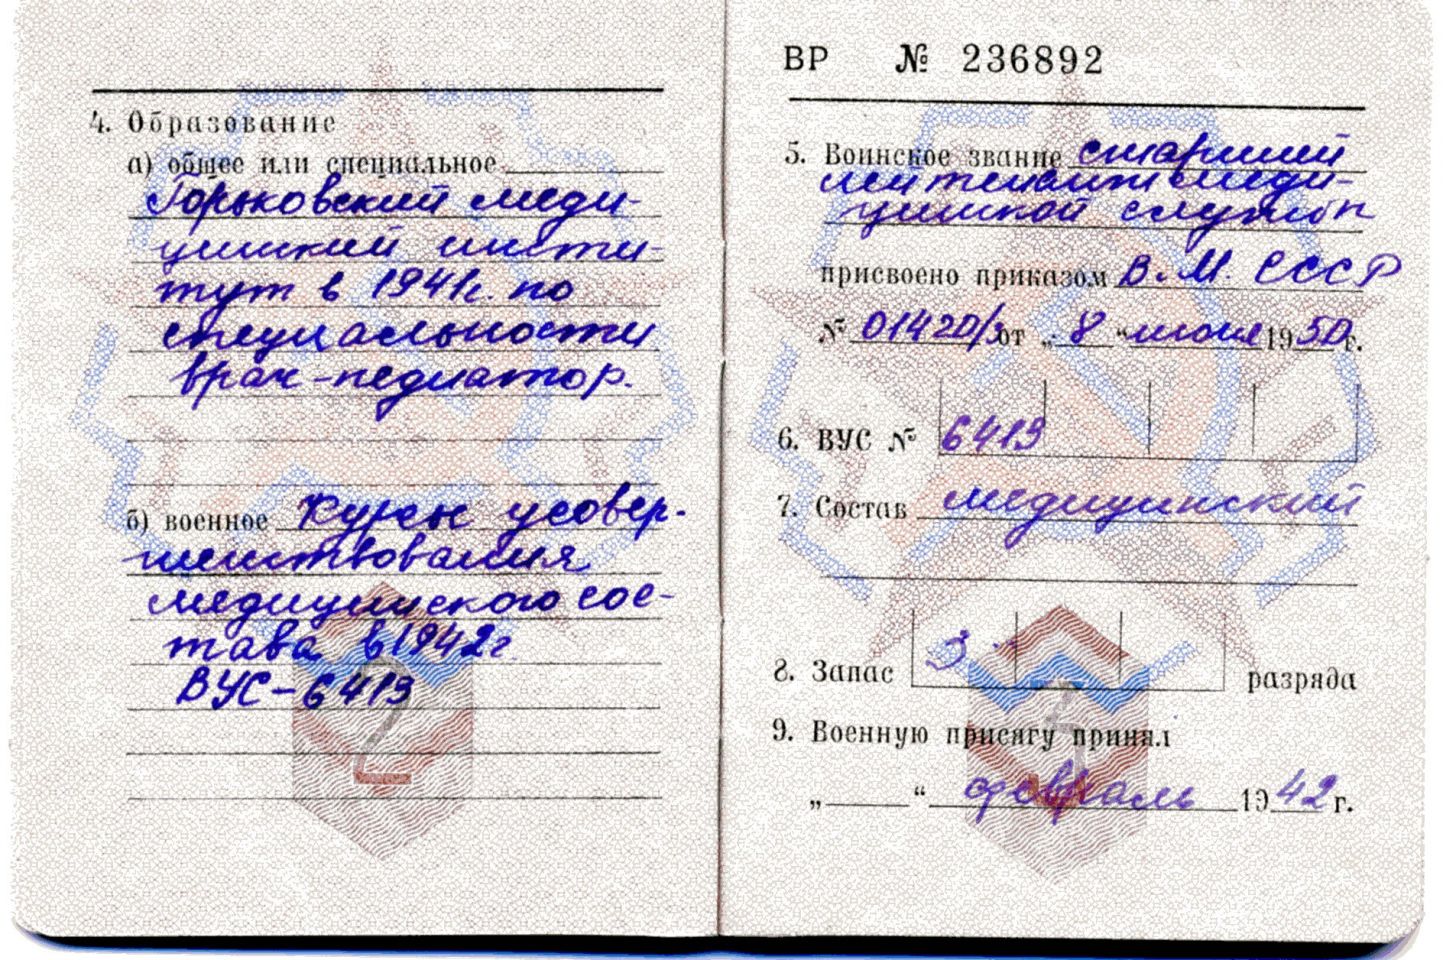 4. Образование
а) общее или специальное
Горьковский меди-
цинский инсти-
тут в 1941г. по
специальности
врач-педиатор.
б) военное Курсы усовер-
шенствования
медицинского сос-
тава в 1942г.
ВУС-6413
2
ВР № 236892
5. Воинское звание старший
лейтенант меди-
цинской службы
присвоено приказом В.М. СССР
№ 01420/ от „8“ июля 1950г.
6. ВУС № 6413
7. Состав медицинский
8. Запас 3 разряда
9. Военную присягу принял
„ “ февраль 1942 г.
3